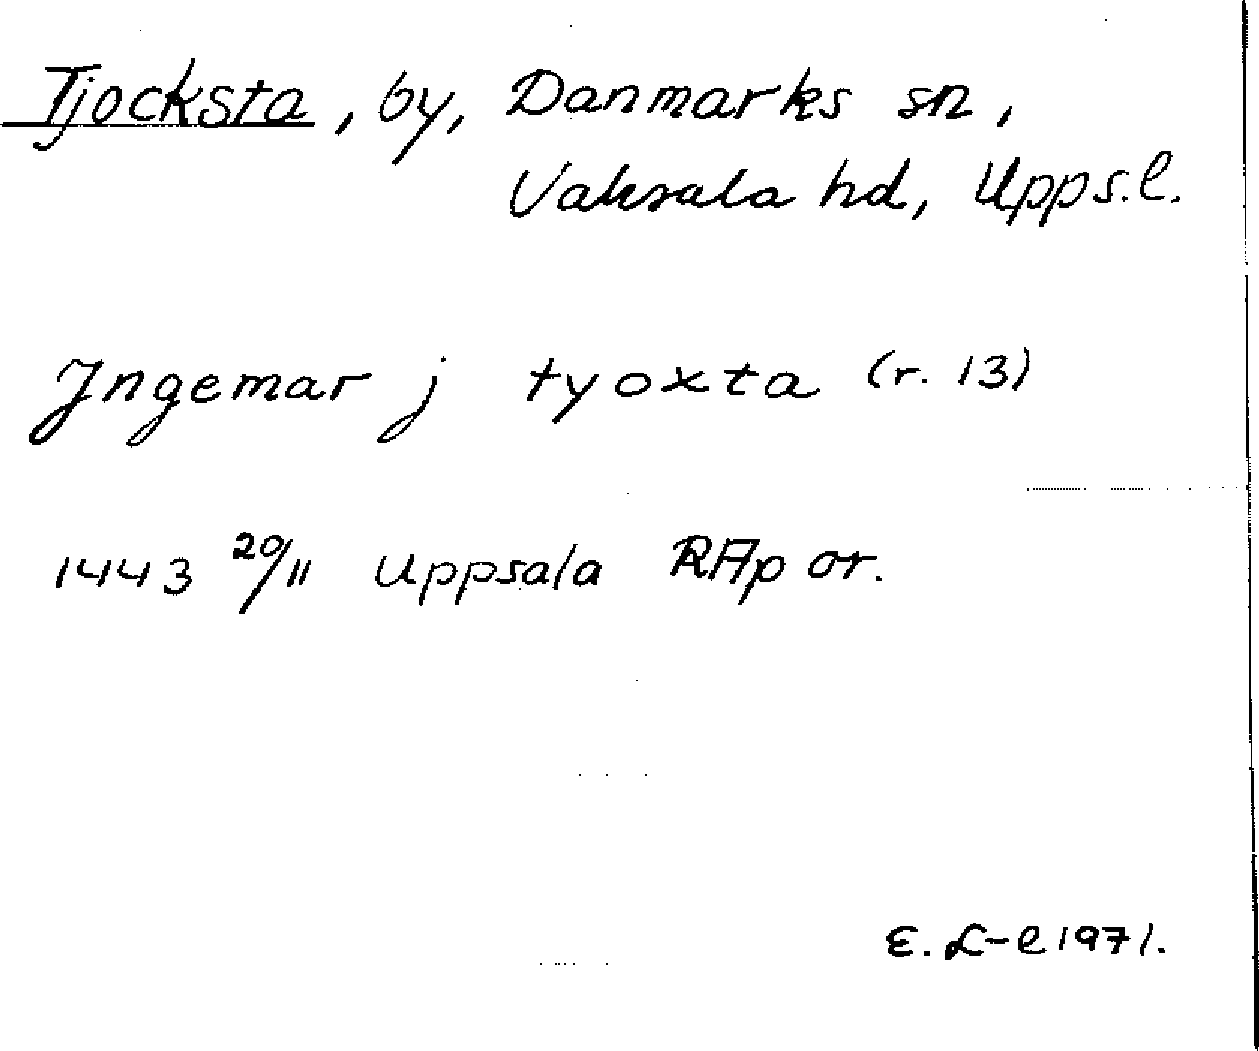 Tjocksta, by, Danmarks sn,
Vaksala hd, Upps.l.
Ingemar j tyoxta (r. 13)
1443 20/11 Uppsala RAp or.
E. L-l 1971.